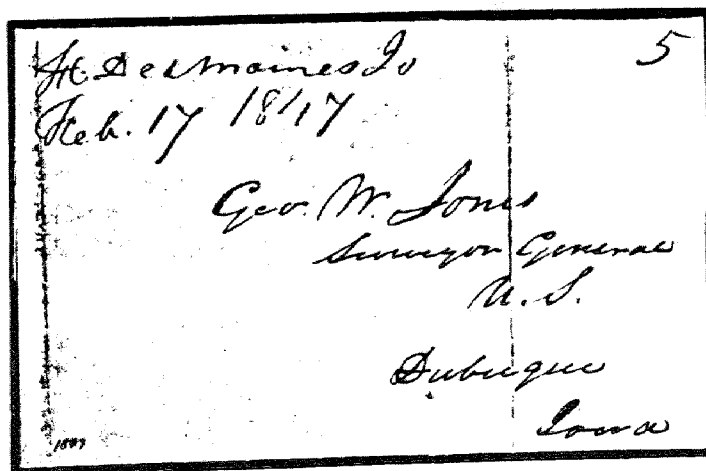 Ft. Des Moines Io
5
Feb. 17 1847
Geo. W. Jones
Surveyor General
U. S.
Dubuque
Iowa
1847